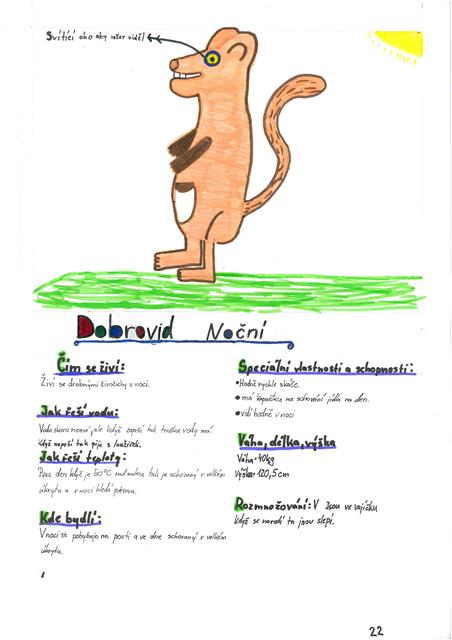 Svítící oko aby večer viděl
Dobrovid Noční
Čím se živí:
Živí se drobnými živočichy v noci.
Jak řeší vodu:
Vodu skoro nemá, ale když zaprší tak trošku vody má
když neprší tak pije s loužiček.
Jak řeší teploty:
Přes den když je 50°C nad nulou tak je schovaný v velkém
úkrytu a v noci hledá potravu.
Kde bydlí:
V noci se pohybuje na poušti a ve dne schovaný v velkém
úkrytu.
Speciální vlastnosti a schopnosti:
•Hodně rychle skáče.
• má kapsičku na schování jídla na den.
•vidí hodně v noci
Váha, délka, výška
Váha: 40kg
Výška: 120,5cm
Rozmnožování: V Jsou ve vajíčku
když se narodí to jsou slepí.
22